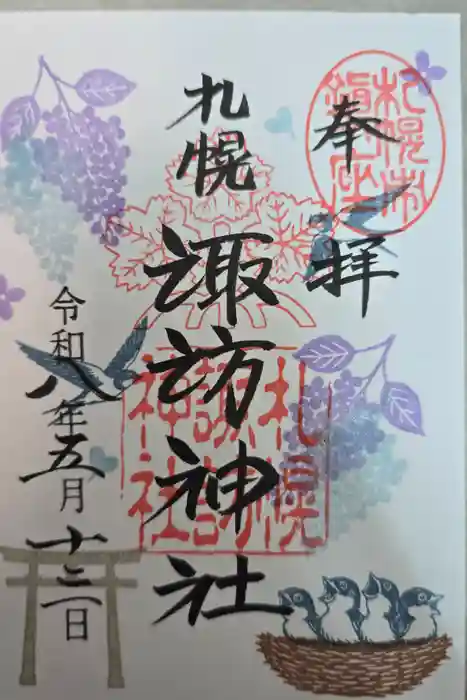 奉拝
札幌市
鎮座
札幌
諏訪神社
札幌
諏訪
神社
令和八年五月十三日